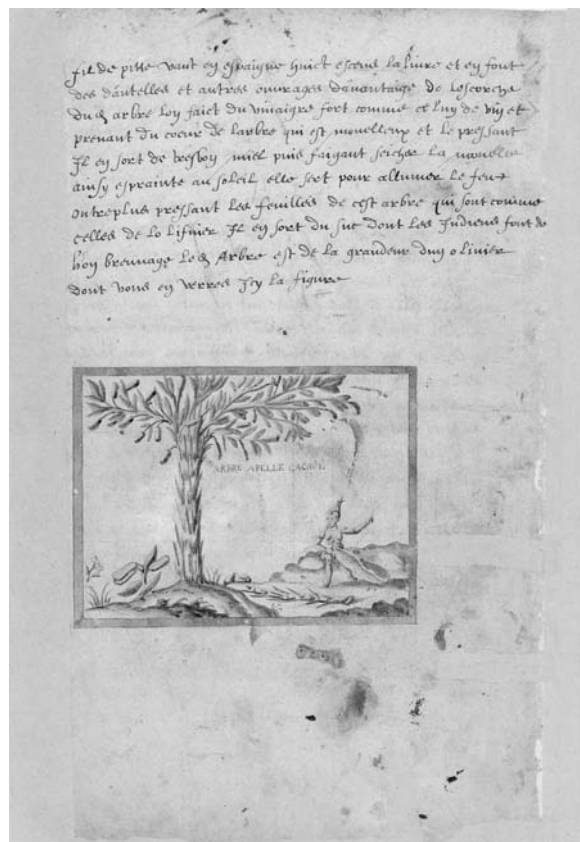 fil de pitte vaut en espaigne huict escens la livre et en font
des dantelles et autres ouvrages davantaige de lescorche
dud arbre lon faict du vinaigre fort comme celuy de vin et
prenant du coeur de larbre qui est mouelleux et le pressant
Il en sort de tresbon miel puis faisant seicher la mouelle
ainsy esprainte au soleil elle sert pour allumer le feu
outreplus pressant les feuilles de cest arbre qui sont comme
celles de lolifvier Il en sort du suc dont les Indiens font du
bon breuvage led Arbre est de la grandeur dun olivier
dont vous en verres Icy la figure
ARBRE APELLE CACAOU